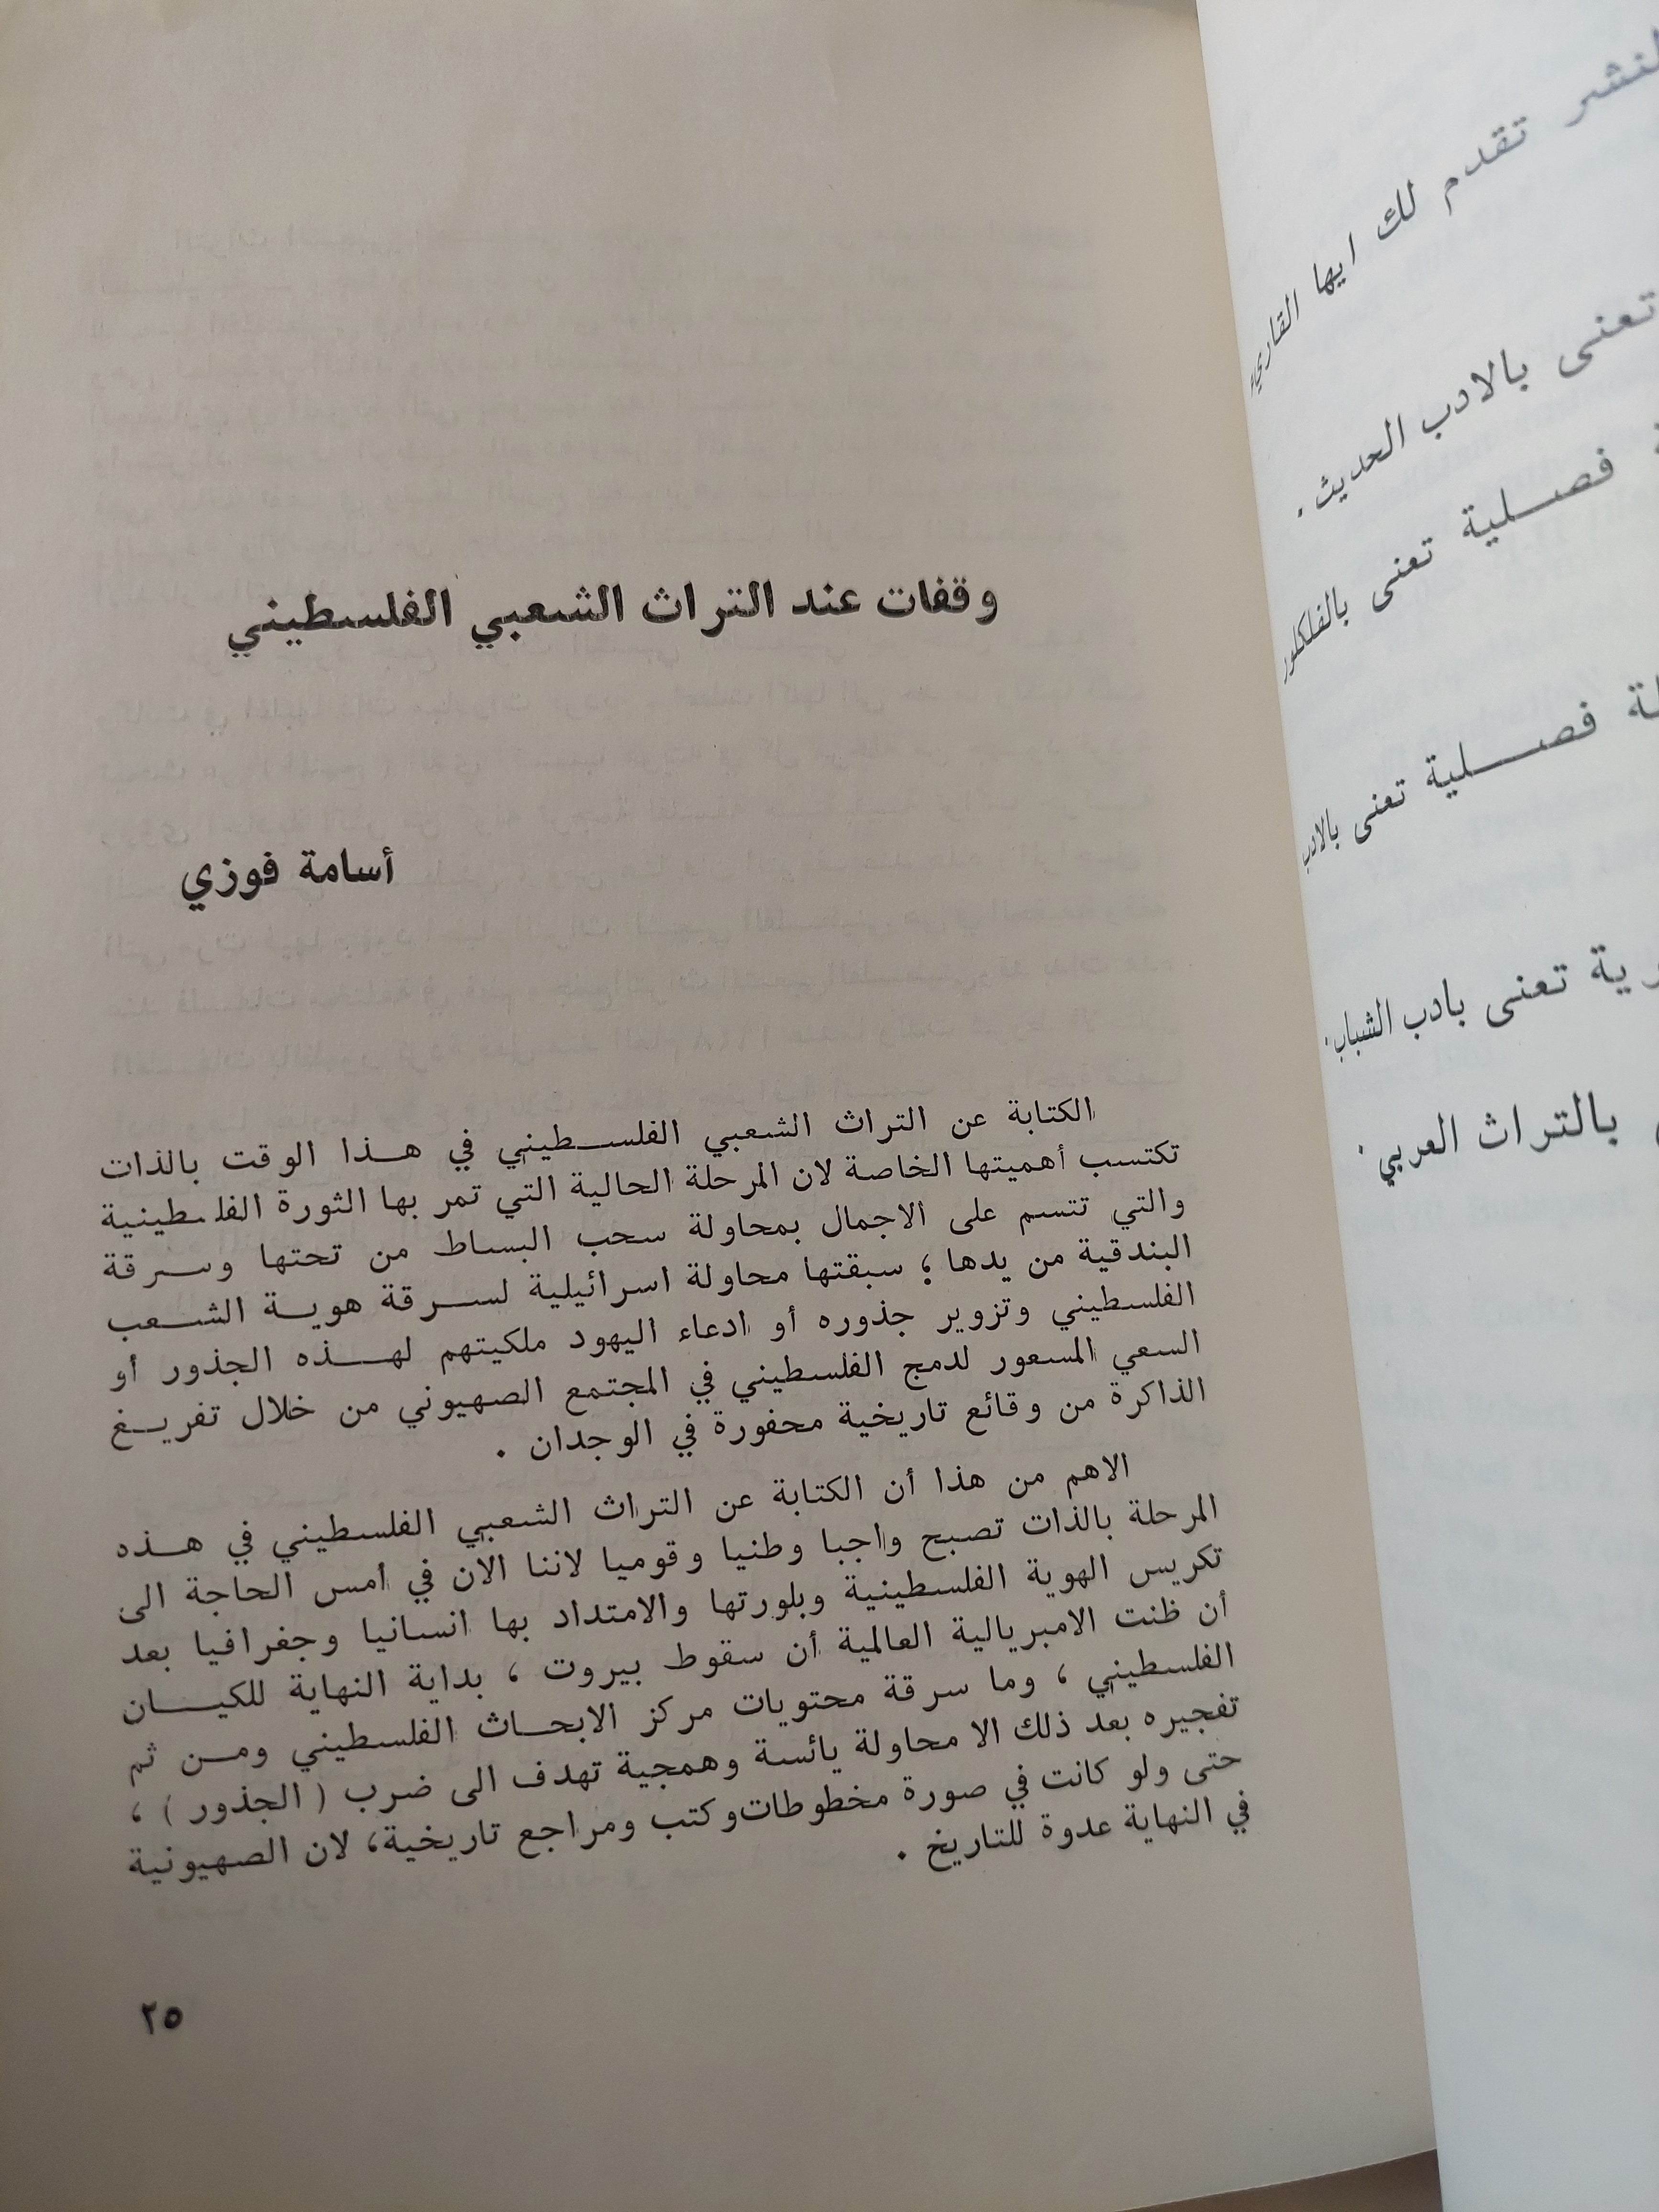 وقفات عند التراث الشعبي الفلسطيني
أسامة فوزي
الكتابة عن التراث الشعبي الفلسطيني في هذا الوقت بالذات
تكتسب أهميتها الخاصة لان المرحلة الحالية التي تمر بها الثورة الفلسطينية
والتي تتسم على الاجمال بمحاولة سحب البساط من تحتها وسرقة
البندقية من يدها ؛ سبقتها محاولة اسرائيلية لسرقة هوية الشعب
الفلسطيني وتزوير جذوره أو ادعاء اليهود ملكيتهم لهذه الجذور أو
السعي المسعور لدمج الفلسطيني في المجتمع الصهيوني من خلال تفريغ
الذاكرة من وقائع تاريخية محفورة في الوجدان .
الاهم من هذا أن الكتابة عن التراث الشعبي الفلسطيني في هذه
المرحلة بالذات تصبح واجبا وطنيا وقوميا لاننا الان في أمس الحاجة الى
تكريس الهوية الفلسطينية وبلورتها والامتداد بها انسانيا وجغرافيا بعد
أن ظنت الامبريالية العالمية أن سقوط بيروت ، بداية النهاية للكيان
الفلسطيني ، وما سرقة محتويات مركز الابحاث الفلسطيني ومن ثم
تفجيره بعد ذلك الا محاولة يائسة وهمجية تهدف الى ضرب ( الجذور ) ،
حتى ولو كانت في صورة مخطوطات وكتب ومراجع تاريخية، لان الصهيونية
في النهاية عدوة للتاريخ .
٢٥
تقدم لك ايها القاريء
تعنى بالادب الحديث .
فصلية تعنى بالفلكلور
فصلية تعنى بالادب
تعنى بادب الشباب.
بالتراث العربي .